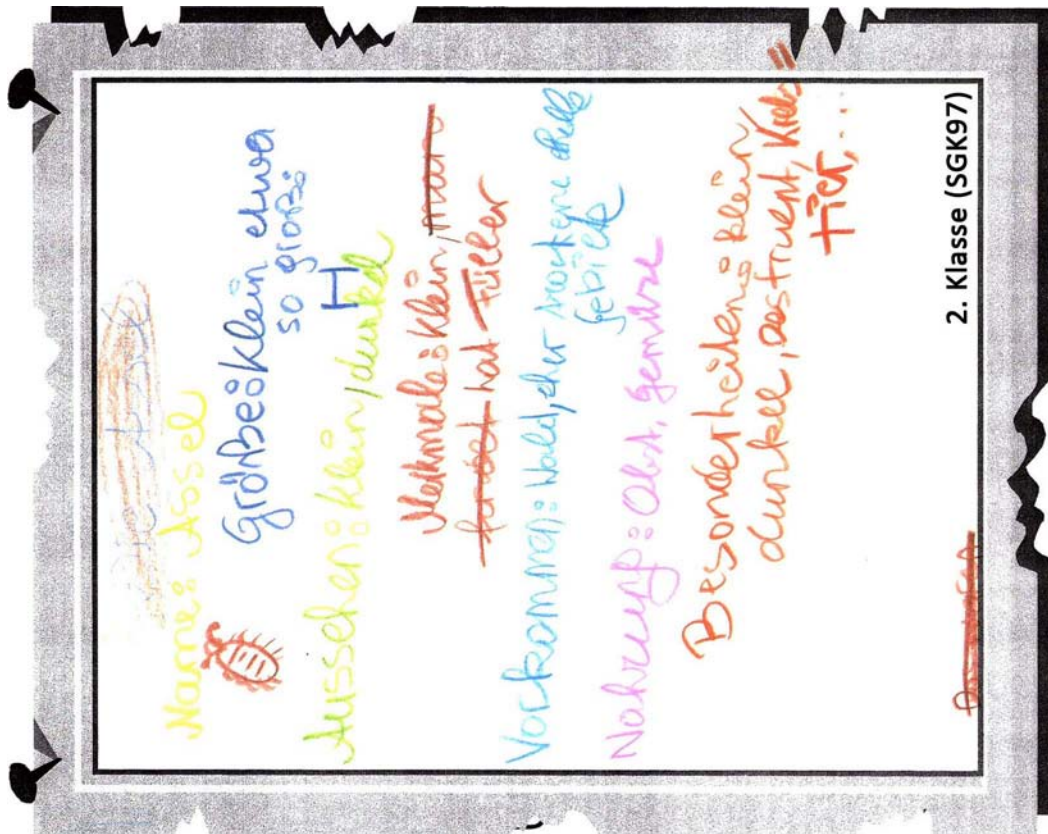 Name: Assel
Größe: klein etwa
so groß:
H
Aussehen: klein, dunkel
Merkmale: klein,
hat Füller
Vorkommen: Wald, eher
gebiete
Nahrung: Obst, gemüse
Besonderheiten: klein
dunkel, destruent, Krebs=
tier,...
2. Klasse (SGK97)